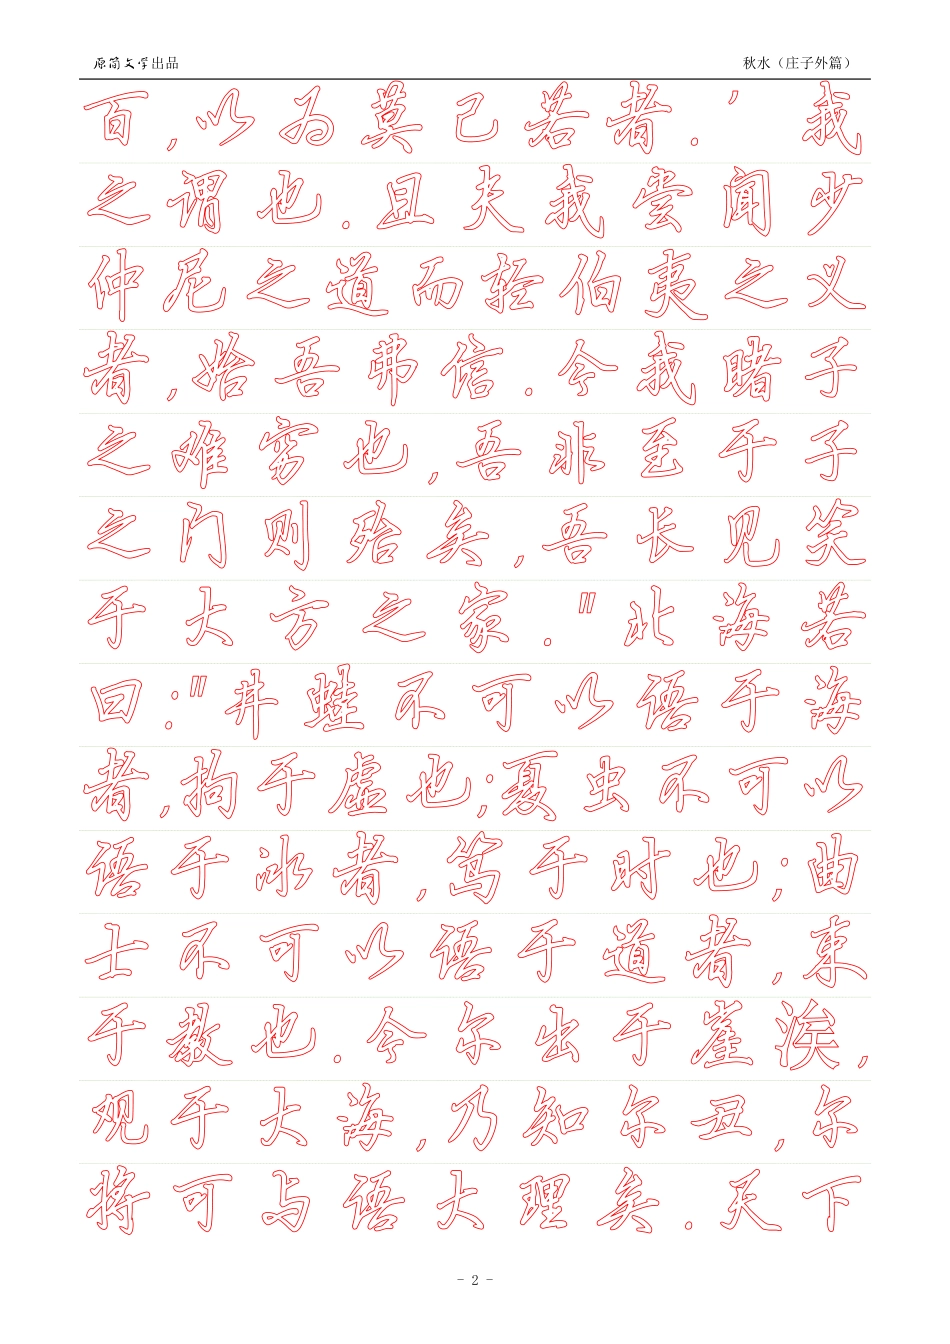 原简文学出品 秋水（庄子外篇）
百,以为莫己若者.' 我
之谓也.且夫我尝闻少
仲尼之道而轻伯夷之义
者,始吾弗信.今我睹子
之难穷也,吾非至于子
之门则殆矣,吾长见笑
于大方之家."北海若
曰:"井蛙不可以语于海
者,拘于虚也;夏虫不可以
语于冰者,笃于时也;曲
士不可以语于道者,束
于教也.今尔出于崖涘,
观于大海,乃知尔丑,尔
将可与语大理矣.天下
- 2 -